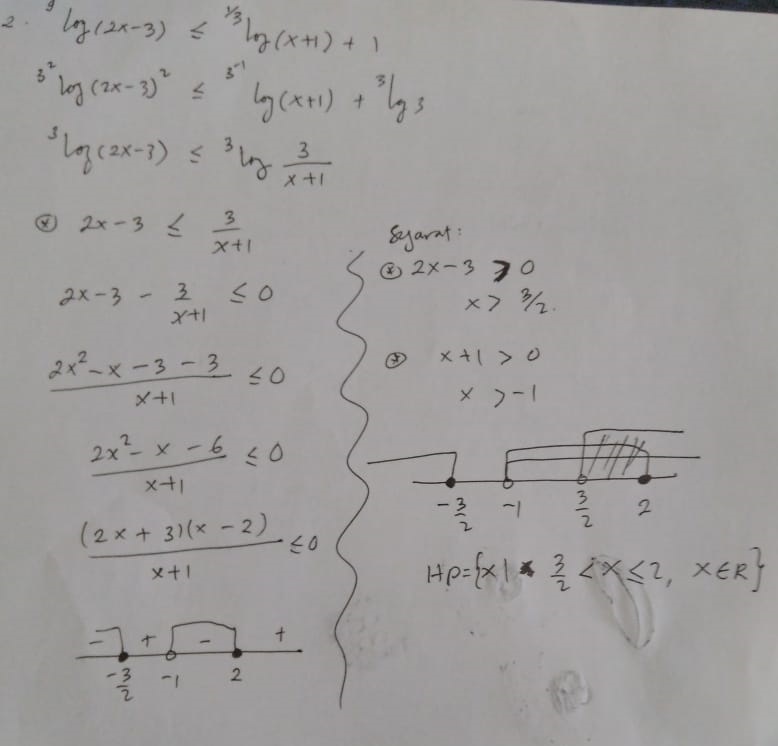 2. ⁹log(2x-3) ≤ ^{1/3}log(x+1) + 1
^{3²}log(2x-3)² ≤ ^{3⁻¹}log(x+1) + ³log 3
³log(2x-3) ≤ ³log 3/(x+1)
⊛ 2x-3 ≤ 3/(x+1)
2x-3 - 3/(x+1) ≤ 0
(2x²-x-3-3)/(x+1) ≤ 0
(2x²-x-6)/(x+1) ≤ 0
((2x+3)(x-2))/(x+1) ≤ 0
- + - +
-3/2 -1 2
Syarat:
⊛ 2x-3 > 0
x > 3/2.
⊛ x+1 > 0
x > -1
-3/2 -1 3/2 2
HP={x| 3/2 < x ≤ 2, x ∈ R}